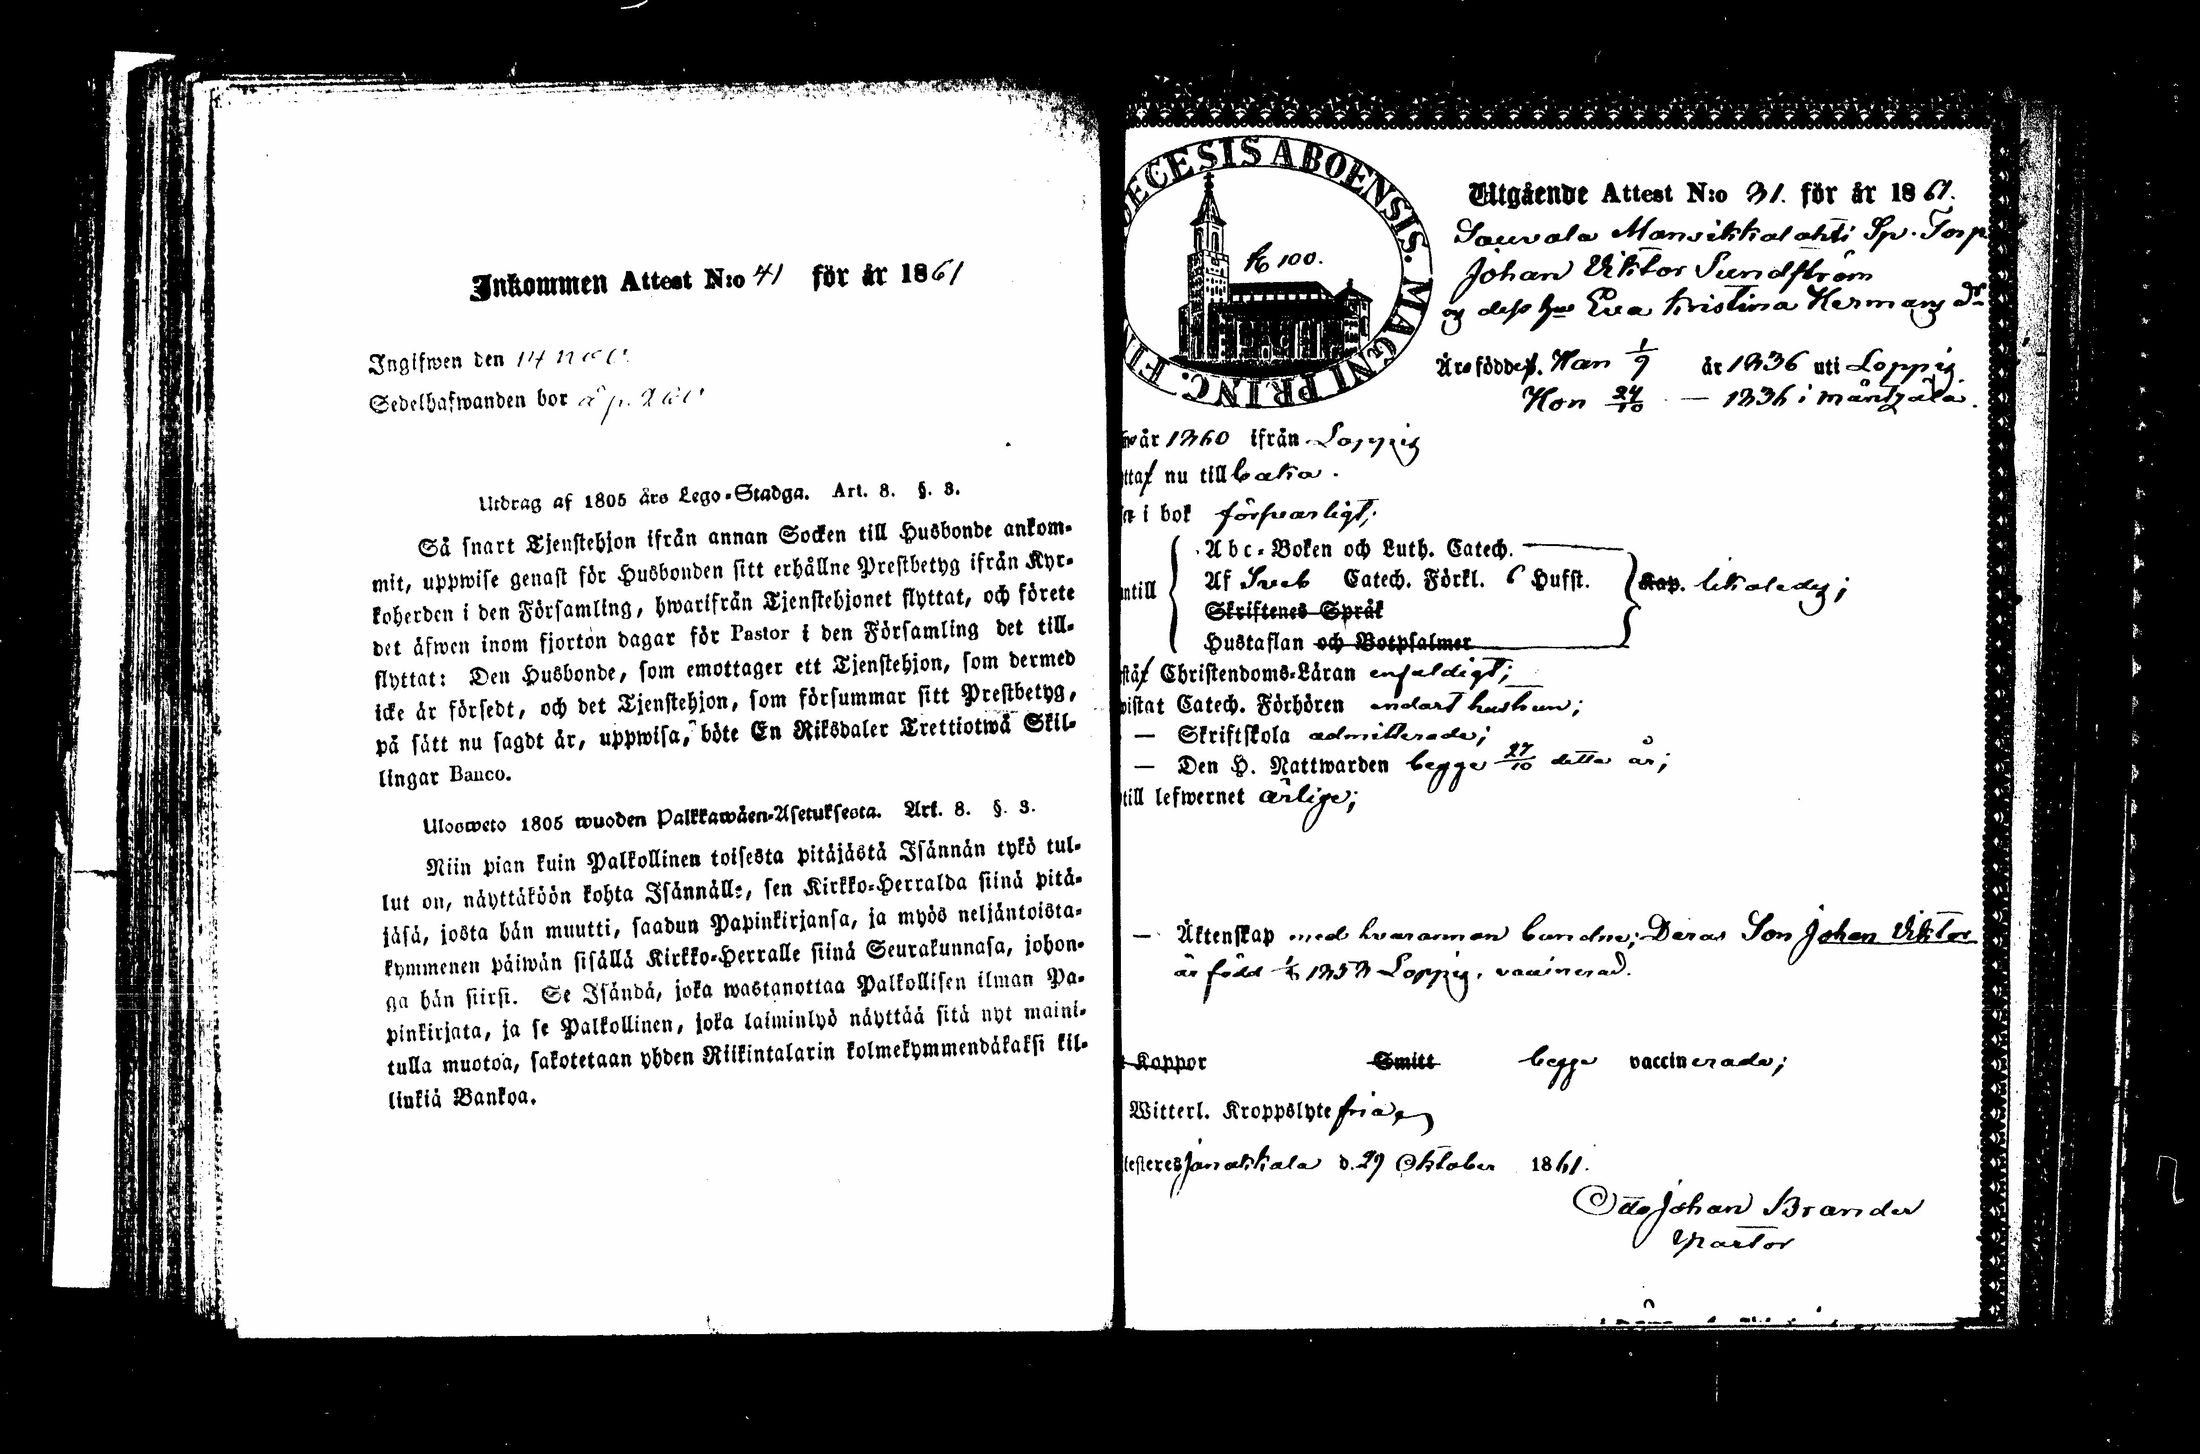 Inkommen Attest N:o 41 för år 1861
Ingifwen den 14
Sedelhafwanden bor å p.
Utdrag af 1805 års Lego-Stadga. Art. 8. §. 3.
Så snart Tjenstehjon ifrån annan Socken till Husbonde ankom-
mit, uppwise genast för Husbonden sitt erhållne Prestbetyg ifrån Kyr-
koherden i den Församling, hwarifrån Tjenstehjonet flyttat, och förete
det äfwen inom fjorton dagar för Pastor i den Församling det till-
flyttat: Den Husbonde, som emottager ett Tjenstehjon, som dermed
icke är försedt, och det Tjenstehjon, som försummar sitt Prestbetyg,
på sätt nu sagdt är, uppwisa, böte En Riksdaler Trettiotwå Skil-
lingar Banco.
Ulosweto 1805 wuoden Palkkawäen-Asetuksesta. Art. 8. §. 3.
Niin pian kuin Palkollinen toisesta pitäjästä Isännän tykö tul-
lut on, näyttäköön kohta Isännälle, sen Kirkko-Herralda siinä pitä-
jäsä, josta hän muutti, saadun Papinkirjansa, ja myös neljäntoista-
kymmenen päiwän sisällä Kirkko-Herralle siinä Seurakunnasa, johon-
ga hän siirsi. Se Isändä, joka wastanottaa Palkollisen ilman Pa-
pinkirjata, ja se Palkollinen, joka laiminlyö näyttää sitä nyt maini-
tulla muotoa, sakotetaan yhden Riikintalarin kolmekymmendäkaksi kil-
linkiä Bankoa.
ECESIS ABOENSIS. MAGNI PRINC. FIN
100.
Utgående Attest N:o 31. för år 1861.
Sauvala Mansikkalahti Sp. Torp
Johan Viktor Sundström
og dess hu Eva Kristina Hermans dr
Äro födde. Han 1/9 år 1836 uti Loppis
Hon 24/10 — 1836 i Mäntzälä.
år 1860 ifrån Loppis
nu till baka.
i bok försvarligt;
Abc-Boken och Luth. Catech.
ntill Af Sveb Catech. Förkl. 6 Hufst. Kap. likaledes;
Skriftenes Språk
Hustaflan och Botpsalmer
Christendoms-Läran enfaldigt;
wistat Catech. Förhören endast hustrun;
— Skriftskola admitterade;
— Den H. Nattwarden begge 27/10 detta år;
till lefwernet ärlige;
— Äktenskap med hvarannan bundne; Deras Son Johan Viktor
är född 1858 Loppis, vaccinerad.
Koppor Smitt begge vaccinerade;
Witterl. Kroppslyte fria,
testeres Janakkala d. 29 Oktober 1861.
Otto Johan Brander
Pastor